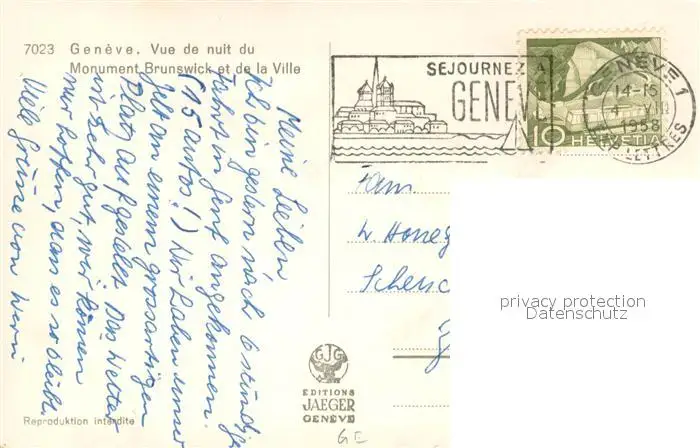 7023 Genève. Vue de nuit du
Monument Brunswick et de la Ville
Meine Lieben
Ich bin gestern nach 6 stündiger
Fahrt in Genf angekommen.
(15 autos!) Wir haben unser
Zelt an einem grossartigen
Platz aufgestellt. Das Wetter
ist sehr gut, wir können
nur hoffen, dass es so bleibt.
Viele Grüsse von Werni
SEJOURNEZ A
GENEVE
GENÈVE 1
14-15
4 VIII
1958
LETTRES
10 HELVETIA
Fam.
W. Honeg
privacy protection
Datenschutz
GJG
EDITIONS
JAEGER
GENEVE
GE
Reproduktion interdite